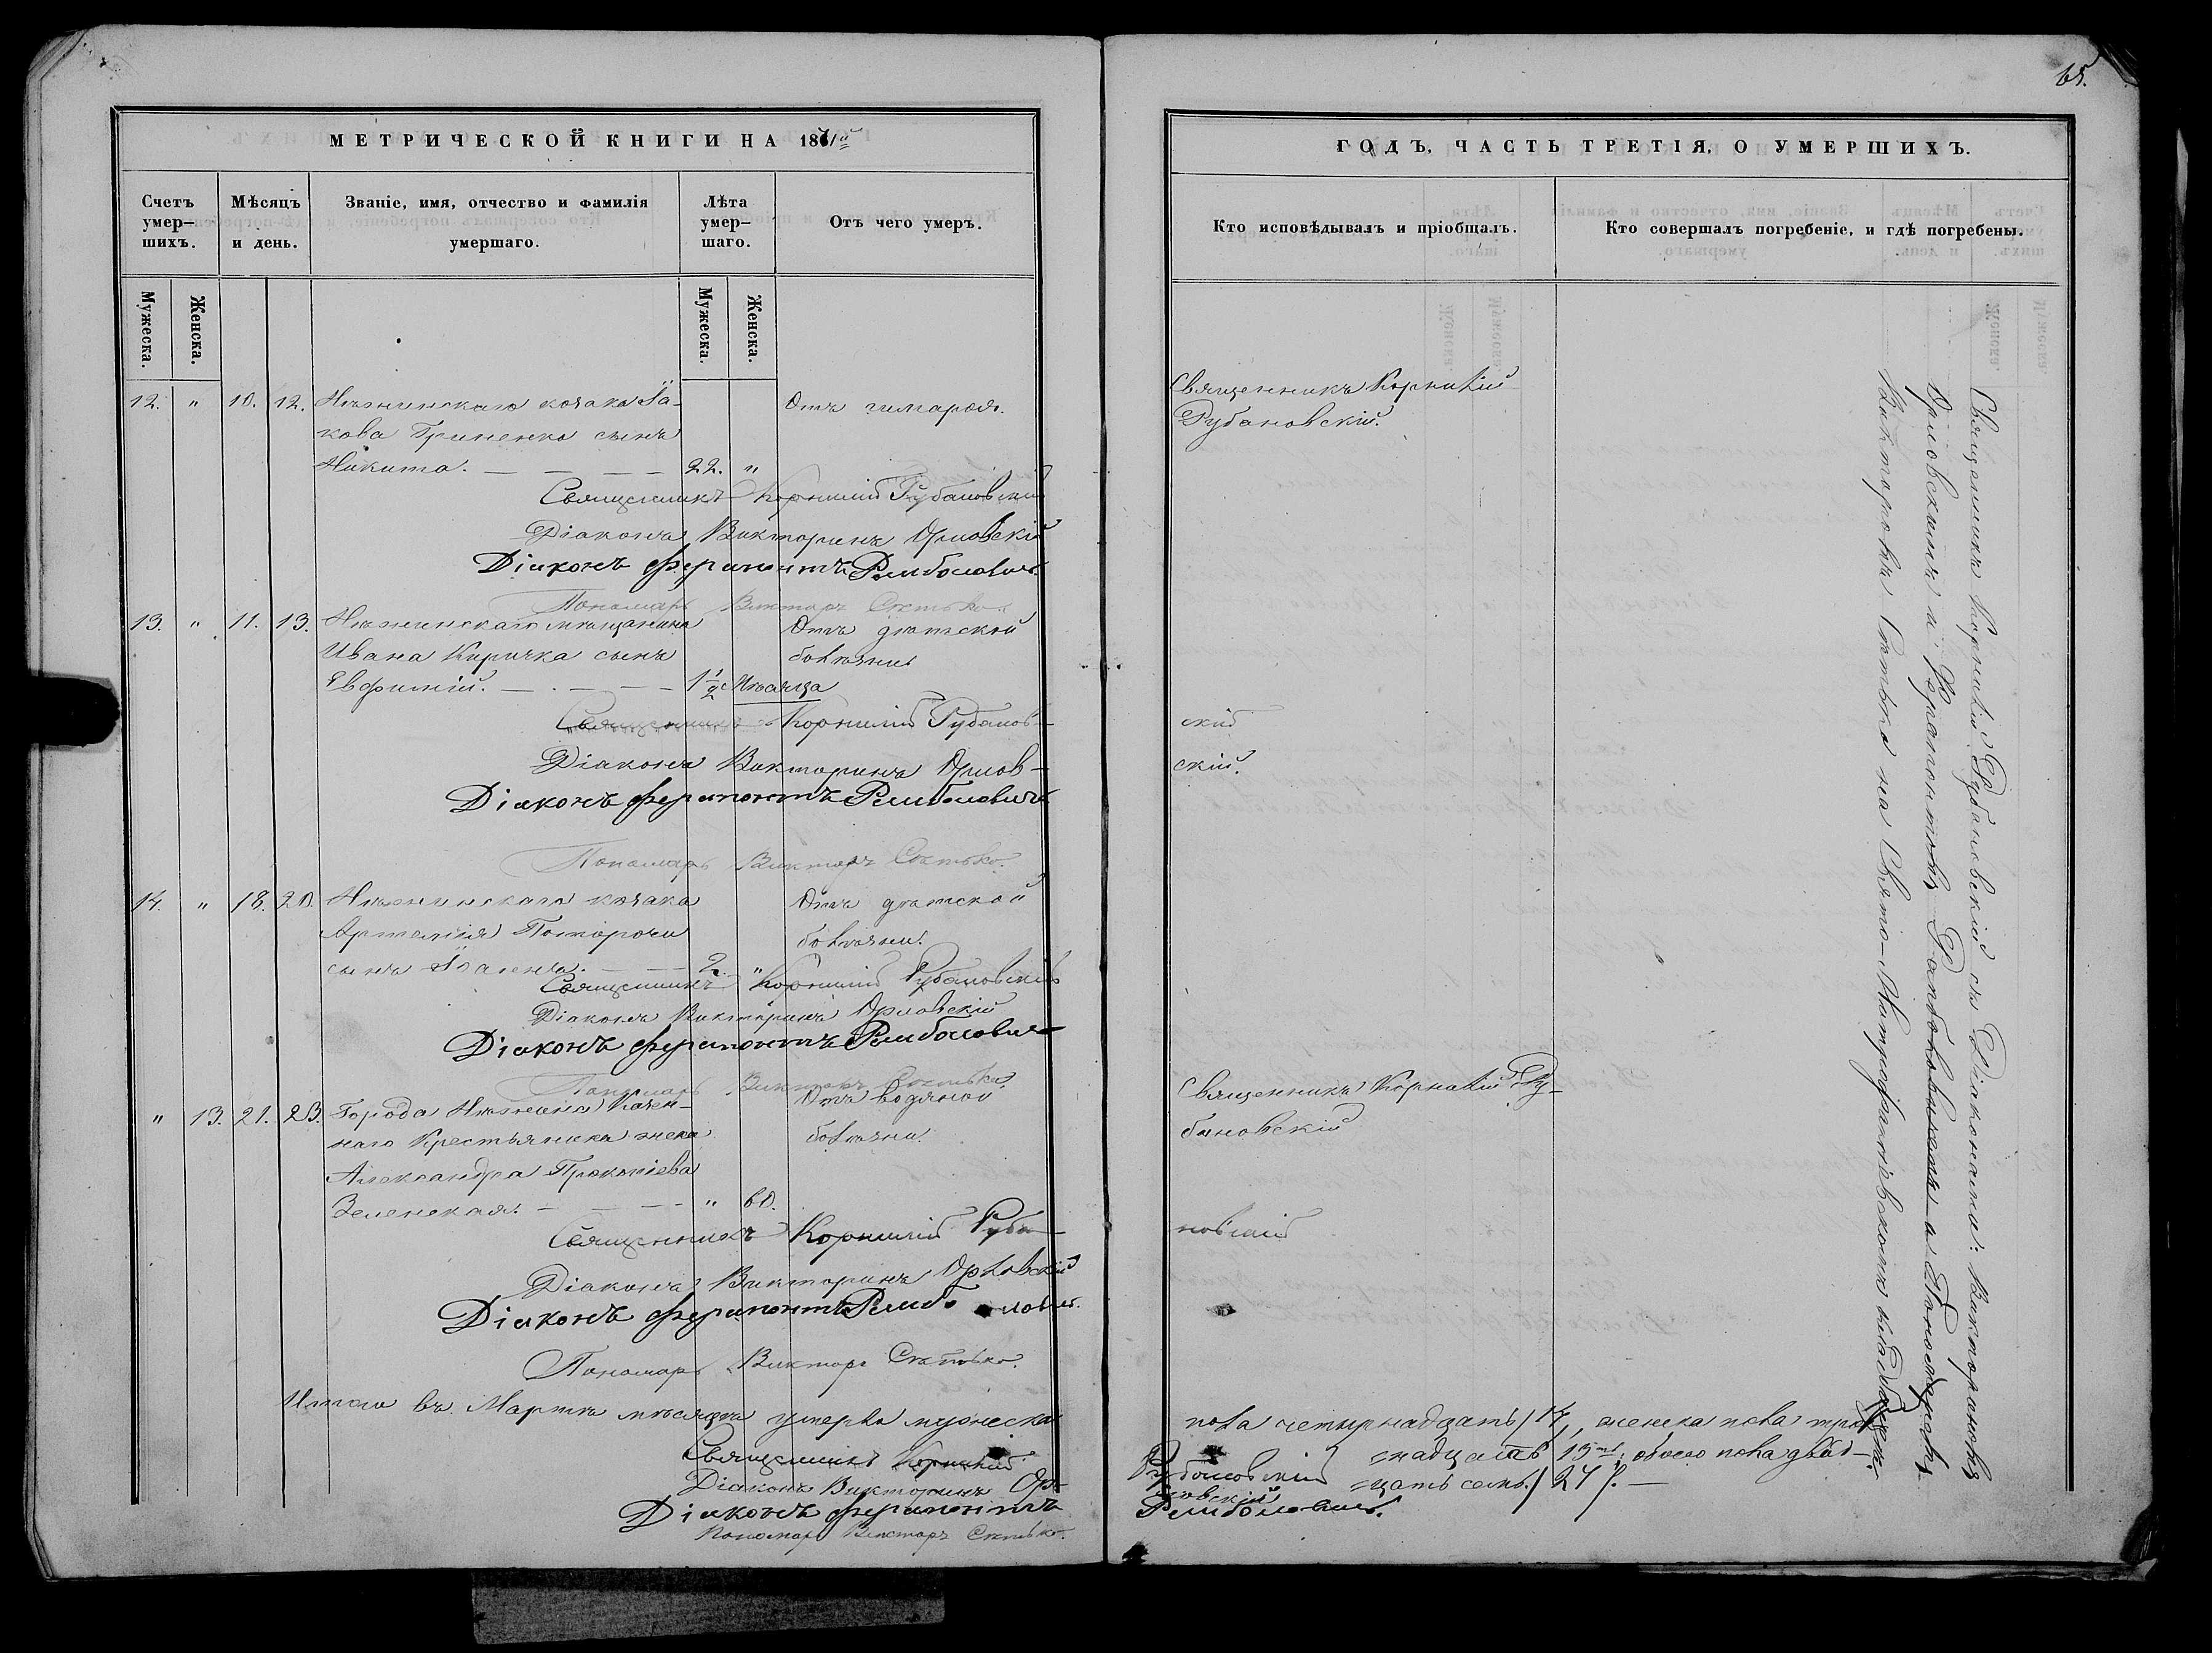 МЕТРИЧЕСКОЙ КНИГИ НА 1871й
Счетъ умер-шихъ.
Мѣсяцъ и день.
Званіе, имя, отчество и фамилія умершаго.
Лѣта умер-шаго.
Отъ чего умеръ.
Мужеска.
Женска.
Мужеска.
Женска.
12. " 10. 12. Нѣжинскаго козака Iа-
кова Гриненко сынъ
Никита. — — — — 22. "
Священникъ Корнилій Рубановскій
Діаконъ Викторинъ Орловскій
Діаконъ Ферапонтъ Рамболовичъ.
Пономарь Викторъ
13. " 11. 13. Нѣжинскаго мѣщанина Отъ дѣтской
Ивана Киричка сынъ болѣзни
Евфимій. — — — 1 1/2 Мѣсяца
Священникъ Корнилій Рубанов-
Діаконъ Викторинъ Орлов-
Діаконъ Ферапонтъ Рамболовичъ
Пономарь Викторъ
14. " 18. 20. Нѣжинскаго козака Отъ дѣтской
Артемія болѣзни.
сынъ — — 2. "
Священникъ Корнилій Рубановскій
Діаконъ Викторинъ Орловскій
Діаконъ Ферапонтъ Рамболовичъ
Пономарь Викторъ
" 13. 21. 23. Города Нѣжина Казен- Отъ водяной
наго Крестьянина жена болѣзни.
Александра Прокопіева
Зеленская. — — — " 60.
Священникъ Корнилій Руба-
Діаконъ Викторинъ Орловскій
Діаконъ Ферапонтъ Рамболовичъ.
Пономарь Викторъ
Итого въ Мартѣ мѣсяцѣ умерло мужеска
Священникъ Корнилій
Діаконъ Викторинъ Ор-
Діаконъ Ферапонтъ
Пономарь Викторъ
65.
ГОДЪ, ЧАСТЬ ТРЕТІЯ, О УМЕРШИХЪ.
Кто исповѣдывалъ и пріобщалъ.
Кто совершалъ погребеніе, и гдѣ погребены.
Священникъ Корнилій
Рубановскій.
скій
скій.
Священникъ Корнилій Ру-
бановскій
новскій
Священникъ Корнилій Рубановскій съ Діаконами: Викториномъ
Орловскимъ и Ферапонтомъ Рамболовичемъ и Пономаремъ
Викторомъ на Свято-Митрофаніевскомъ кладбищѣ.
пола четырнадцать / 14, женска пола три-
надцать 13ть, обоего пола двад-
цать семь / 27 /. —
Рубановскій
ловскій
Рамболовичъ.